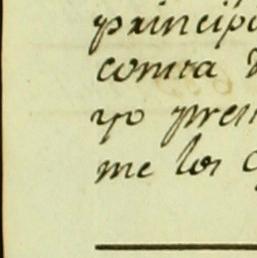 principa
contra
yo pres
me los